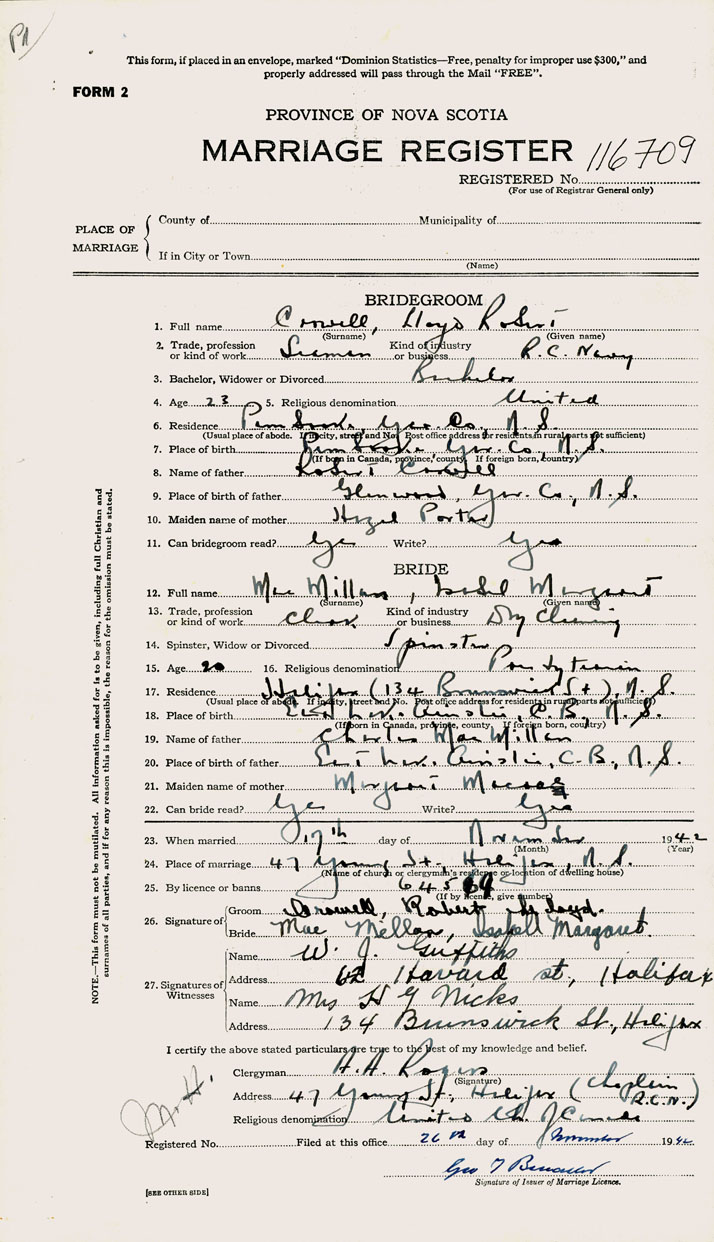 This form, if placed in an envelope, marked "Dominion Statistics—Free, penalty for improper use $300," and
properly addressed will pass through the Mail "FREE".
FORM 2
PROVINCE OF NOVA SCOTIA
MARRIAGE REGISTER 116709
REGISTERED No.
(For use of Registrar General only)
PLACE OF MARRIAGE
County of Municipality of
If in City or Town
(Name)
BRIDEGROOM
1. Full name Crowell, Lloyd Robert
(Surname) (Given name)
2. Trade, profession or kind of work Seaman Kind of industry or business R.C. Navy
3. Bachelor, Widower or Divorced Bachelor
4. Age 23 5. Religious denomination United
6. Residence Pembroke, Yar. Co., N.S.
(Usual place of abode. If in city, street and No. Post office address for residents in rural parts not sufficient)
7. Place of birth Pembroke Yar. Co., N.S.
(If born in Canada, province, county. If foreign born, country)
8. Name of father Robert Crowell
9. Place of birth of father Glenwood, Yar. Co., N.S.
10. Maiden name of mother Hazel Porter
11. Can bridegroom read? Yes Write? Yes
BRIDE
12. Full name MacMillan, Isabel Margaret
(Surname) (Given name)
13. Trade, profession or kind of work Clerk Kind of industry or business Dry Cleaning
14. Spinster, Widow or Divorced Spinster
15. Age 20 16. Religious denomination Presbyterian
17. Residence Halifax (134 Brunswick St.), N.S.
(Usual place of abode. If in city, street and No. Post office address for residents in rural parts not sufficient)
18. Place of birth East Lake Ainslie, C.B., N.S.
(If born in Canada, province, county. If foreign born, country)
19. Name of father Charles MacMillan
20. Place of birth of father East Lake Ainslie, C.B., N.S.
21. Maiden name of mother Margaret
22. Can bride read? Yes Write? Yes
23. When married 17th day of November 1942
(Month) (Year)
24. Place of marriage 47 Young St., Halifax, N.S.
(Name of church or clergyman's residence or location of dwelling house)
25. By licence or banns 64569
(If by licence, give number)
26. Signature of
Groom Crowell, Robert Lloyd.
Bride MacMillan, Isabell Margaret.
27. Signatures of Witnesses
Name W. J. Griffiths
Address 62 Havard st, Halifax
Name Mrs H G Nicks
Address 134 Brunswick St., Halifax
I certify the above stated particulars are true to the best of my knowledge and belief.
Clergyman A.A. Rogers
(Signature)
Address 47 Young St., Halifax (Chaplain R.C.N.)
Religious denomination United Ch. of Canada
Registered No. Filed at this office 26th day of November 1942
Signature of Issuer of Marriage Licence.
[SEE OTHER SIDE]
NOTE.—This form must not be mutilated. All information asked for is to be given, including full Christian and
surnames of all parties, and if for any reason this is impossible, the reason for the omission must be stated.